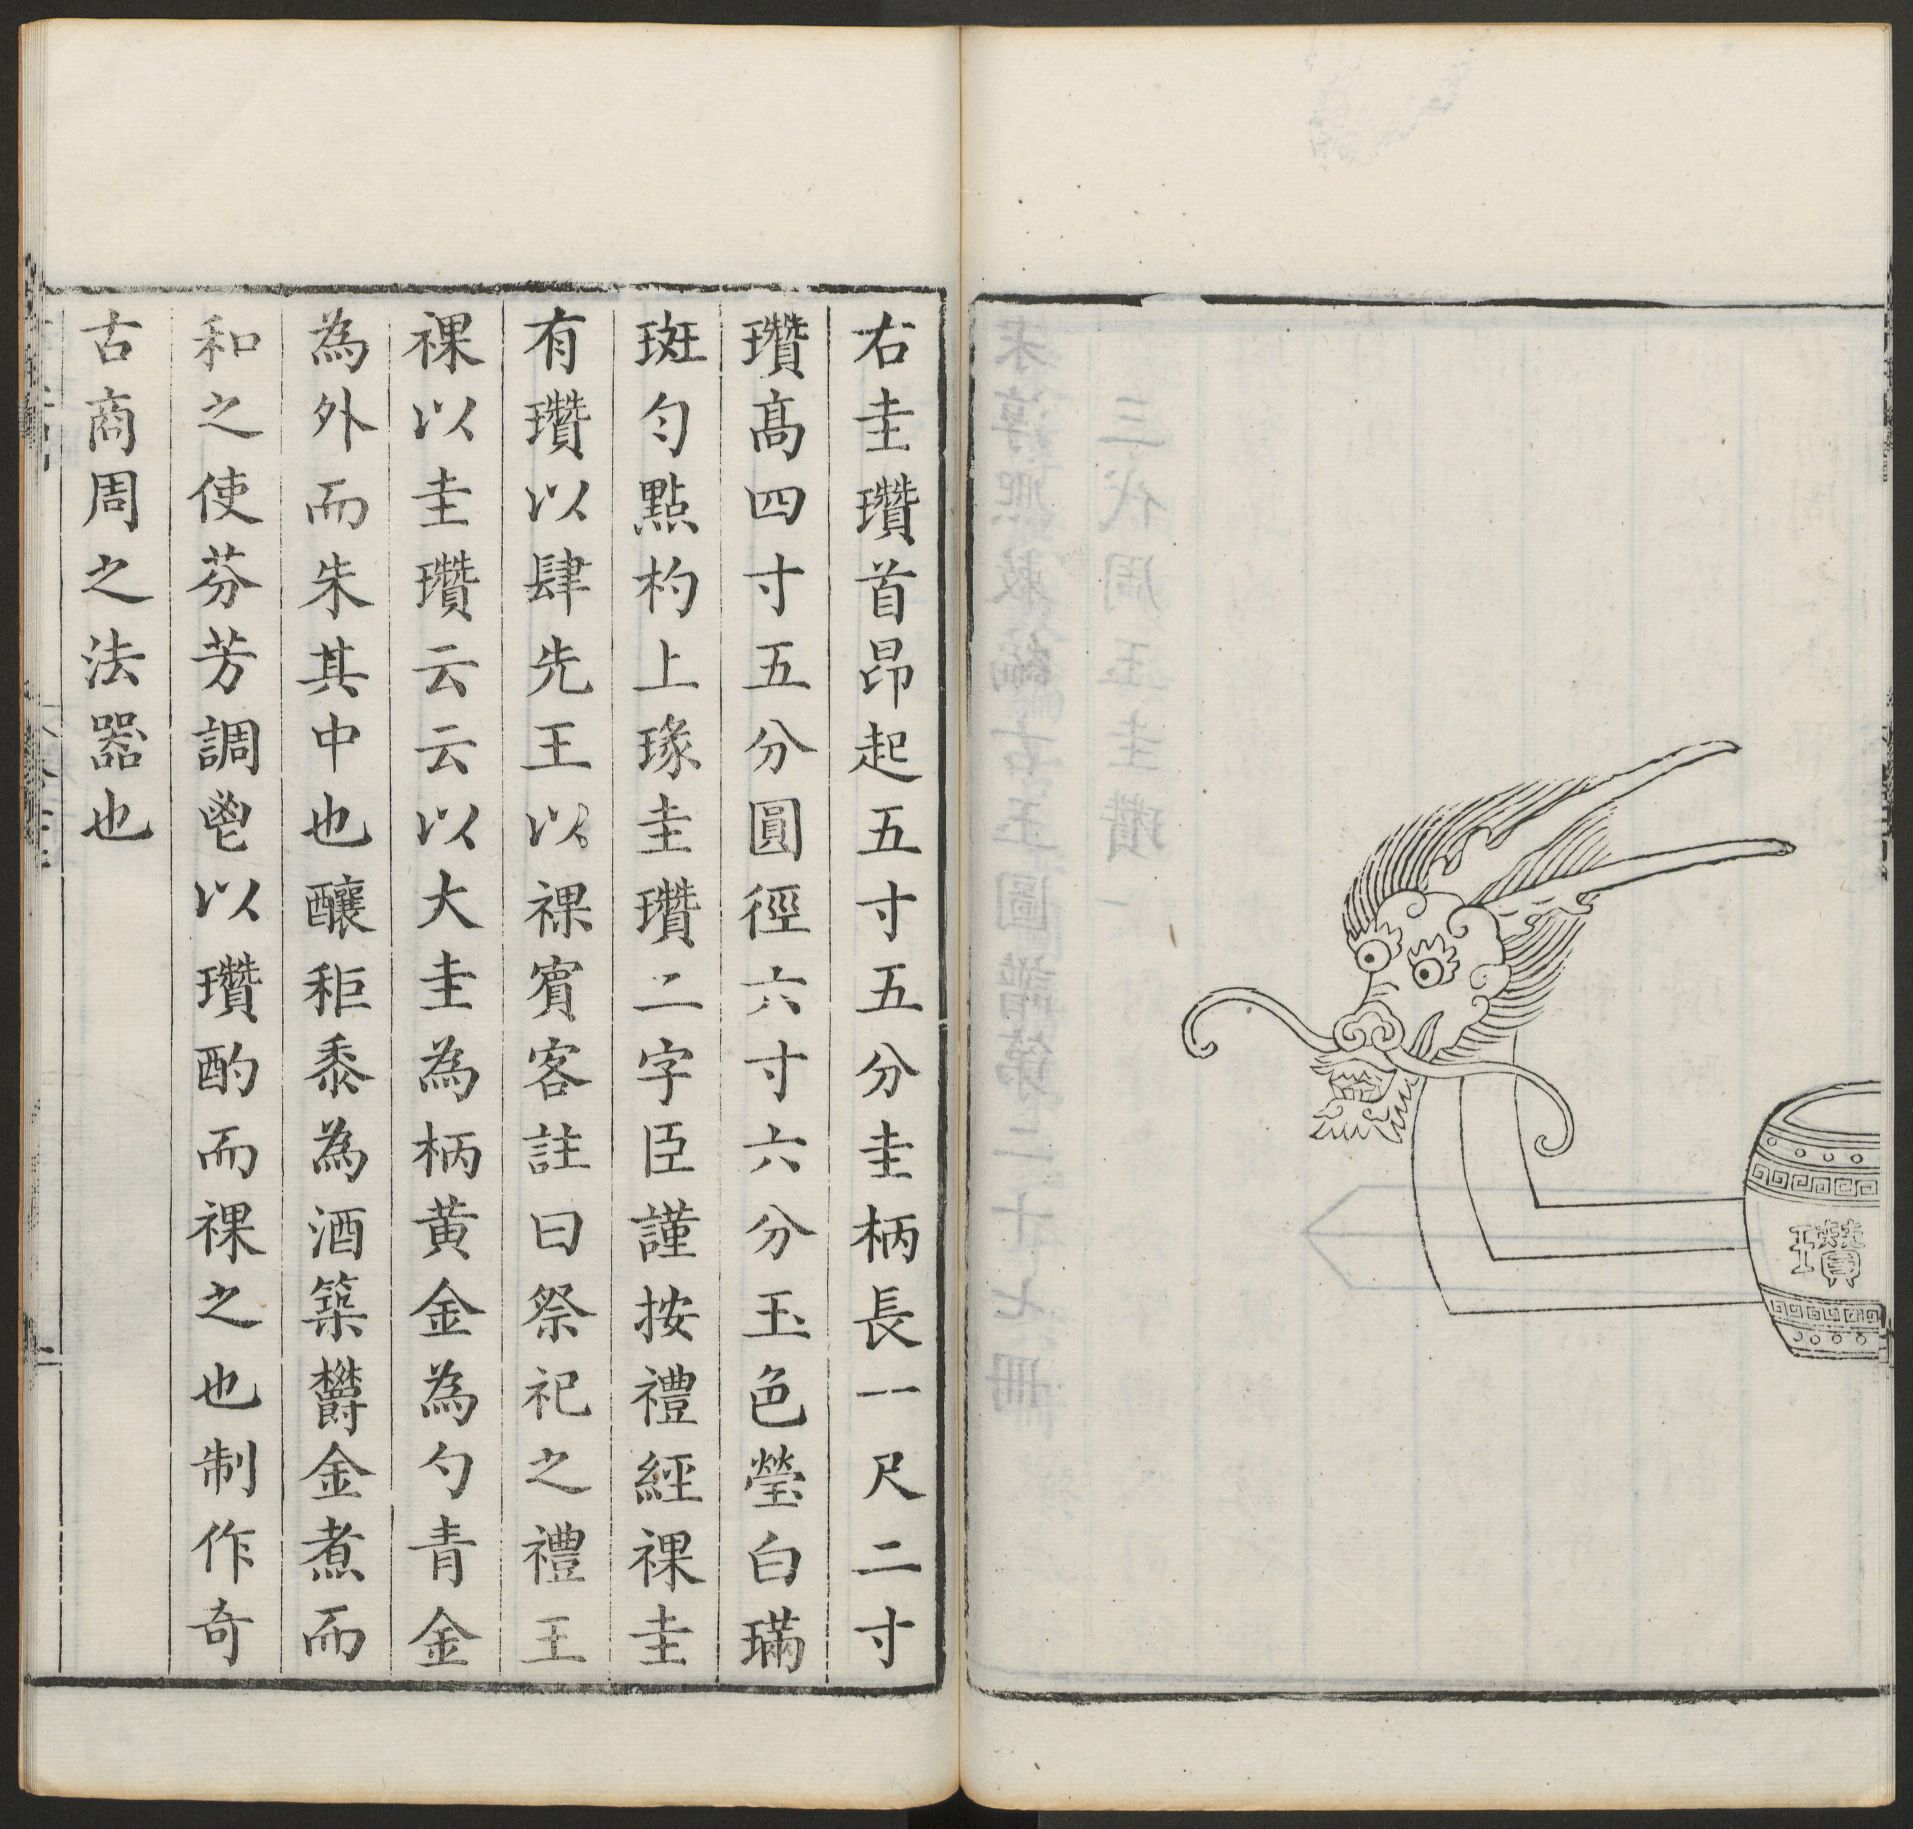 瓚
右圭瓚首昂起五寸五分圭柄長一尺二寸
瓚高四寸五分圓徑六寸六分玉色瑩白璊
斑勻點杓上瑑圭瓚二字臣謹按禮經祼圭
有瓚以肆先王以祼賓客註曰祭祀之禮王
祼以圭瓚云云以大圭為柄黄金為勺青金
為外而朱其中也釀秬黍為酒築欝金煮而
和之使芬芳調鬯以瓚酌而祼之也制作奇
古商周之法器也